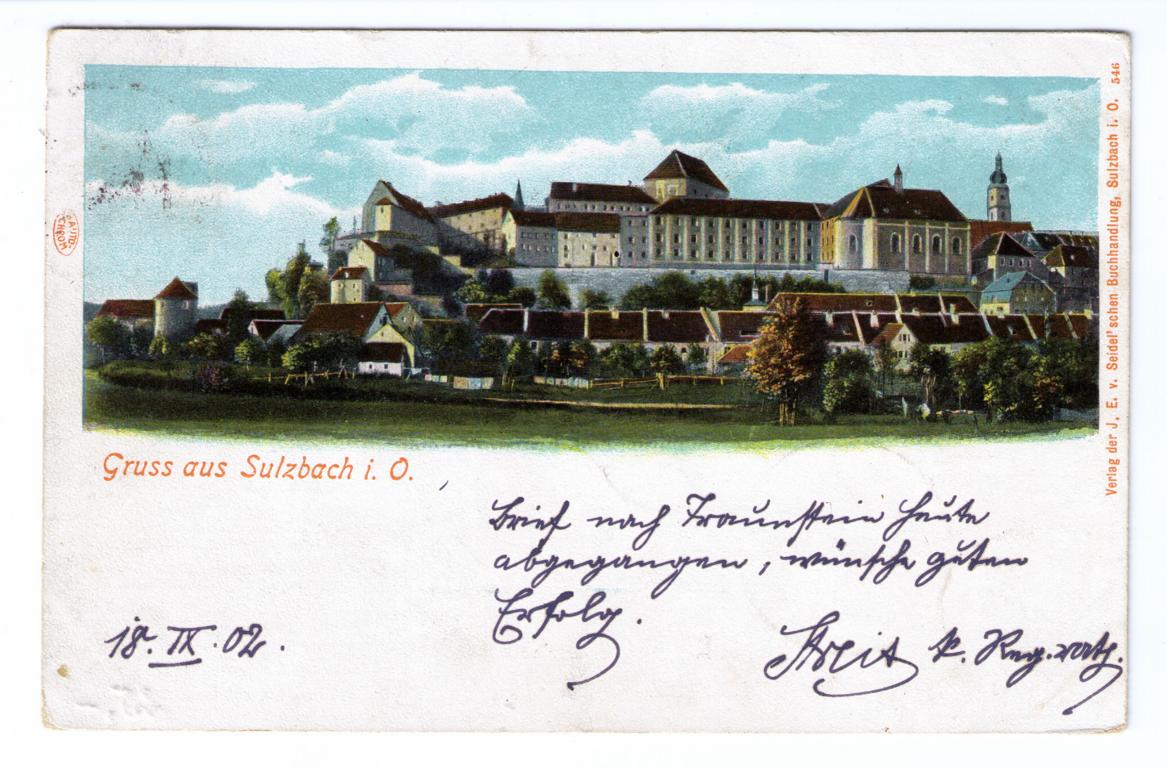 AUTO-
CHROM
Verlag der J. E. v. Seidel'schen Buchhandlung, Sulzbach i. O. 546
Gruss aus Sulzbach i. O.
Brief nach Traunstein heute
abgegangen, wünsche guten
Erfolg.
18. IX. 02.
k. Reg.rath.